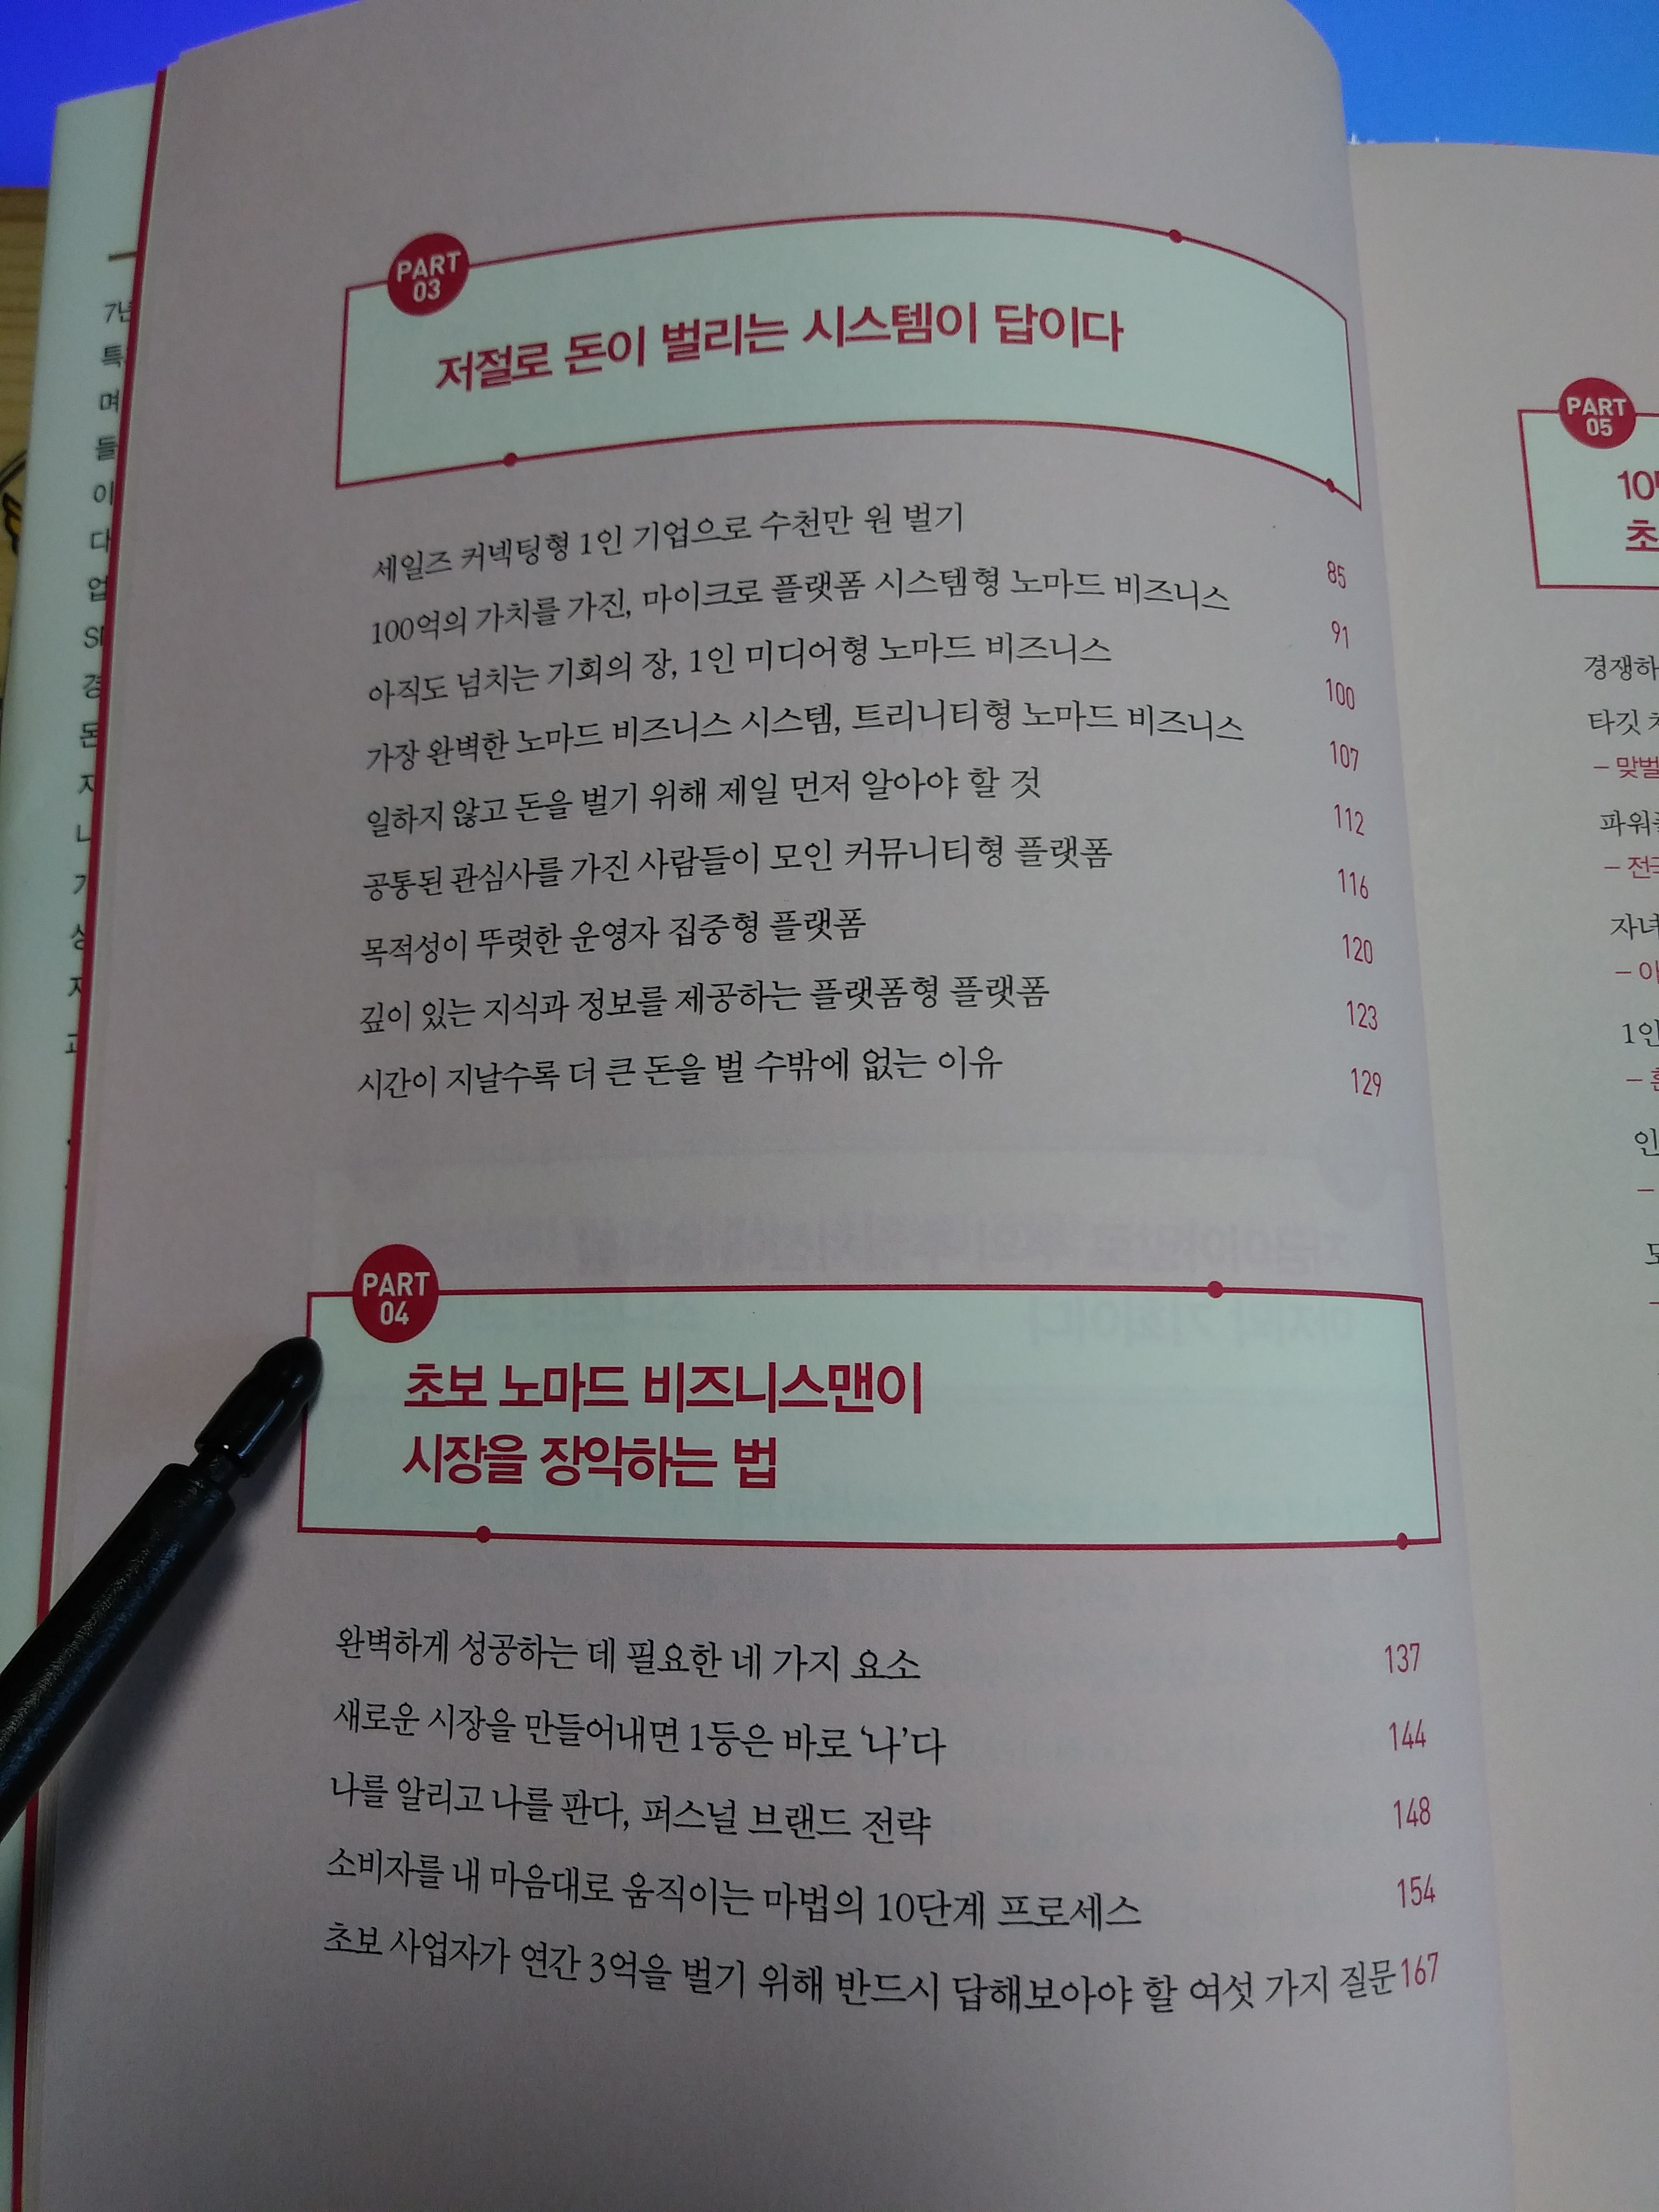 PART
03
저절로 돈이 벌리는 시스템이 답이다
세일즈 커넥팅형 1인 기업으로 수천만 원 벌기 85
100억의 가치를 가진, 마이크로 플랫폼 시스템형 노마드 비즈니스 91
아직도 넘치는 기회의 장, 1인 미디어형 노마드 비즈니스 100
가장 완벽한 노마드 비즈니스 시스템, 트리니티형 노마드 비즈니스 107
일하지 않고 돈을 벌기 위해 제일 먼저 알아야 할 것 112
공통된 관심사를 가진 사람들이 모인 커뮤니티형 플랫폼 116
목적성이 뚜렷한 운영자 집중형 플랫폼 120
깊이 있는 지식과 정보를 제공하는 플랫폼형 플랫폼 123
시간이 지날수록 더 큰 돈을 벌 수밖에 없는 이유 129
PART
04
초보 노마드 비즈니스맨이
시장을 장악하는 법
완벽하게 성공하는 데 필요한 네 가지 요소 137
새로운 시장을 만들어내면 1등은 바로 ‘나’다 144
나를 알리고 나를 판다, 퍼스널 브랜드 전략 148
소비자를 내 마음대로 움직이는 마법의 10단계 프로세스 154
초보 사업자가 연간 3억을 벌기 위해 반드시 답해보아야 할 여섯 가지 질문 167
PART
05
타깃